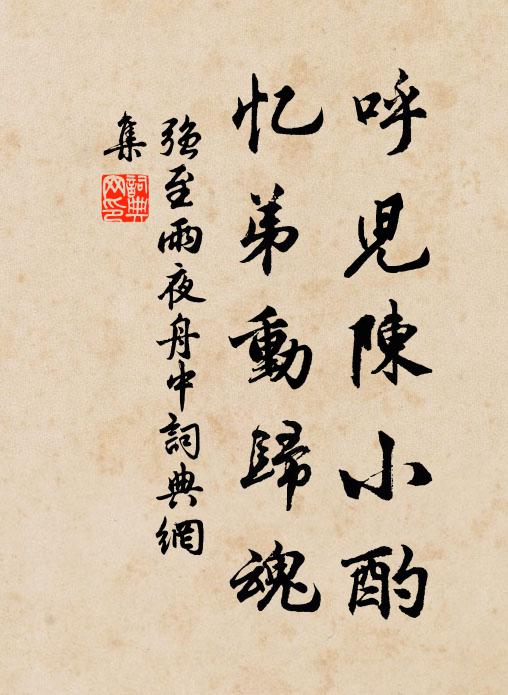 呼児陳小酌
忆弟動歸魂
强至雨夜舟中詞典網
集
詞典
网印